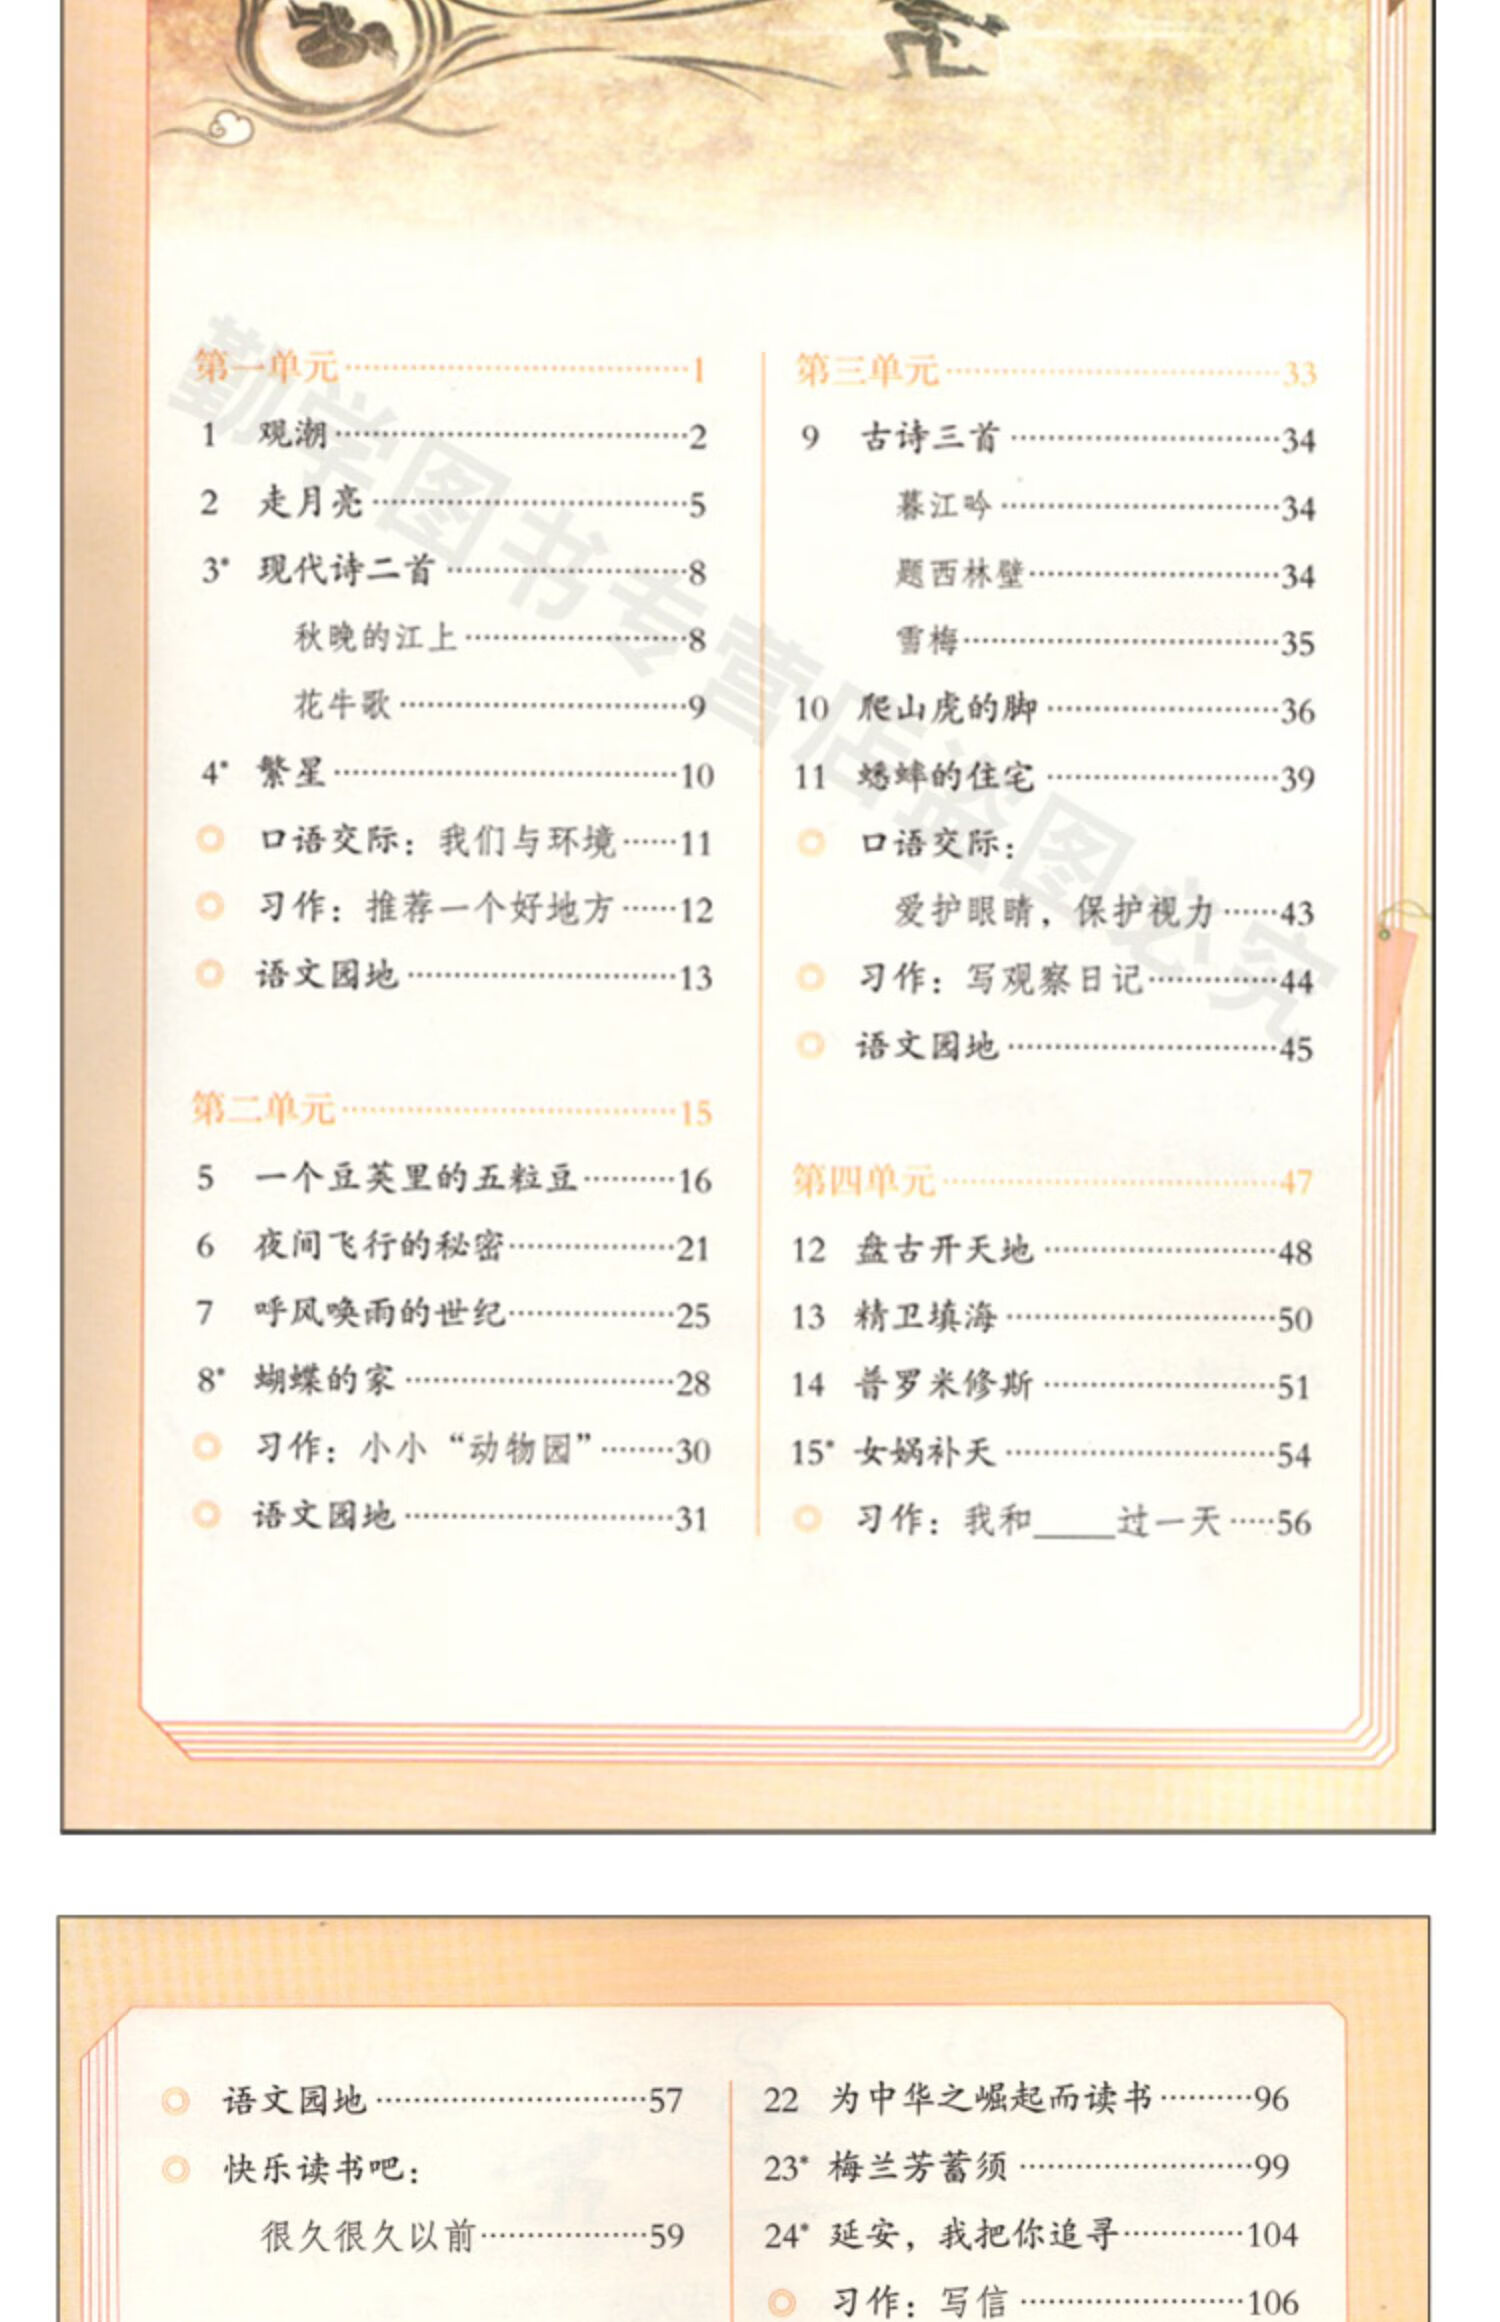 第一单元 1
1 观潮 2
2 走月亮 5
3* 现代诗二首 8
秋晚的江上 8
花牛歌 9
4* 繁星 10
口语交际：我们与环境 11
习作：推荐一个好地方 12
语文园地 13
第二单元 15
5 一个豆荚里的五粒豆 16
6 夜间飞行的秘密 21
7 呼风唤雨的世纪 25
8* 蝴蝶的家 28
习作：小小“动物园” 30
语文园地 31
第三单元 33
9 古诗三首 34
暮江吟 34
题西林壁 34
雪梅 35
10 爬山虎的脚 36
11 蟋蟀的住宅 39
口语交际：
爱护眼睛，保护视力 43
习作：写观察日记 44
语文园地 45
第四单元 47
12 盘古开天地 48
13 精卫填海 50
14 普罗米修斯 51
15* 女娲补天 54
习作：我和____过一天 56
勤学图书专营店盗图必究
语文园地 57
快乐读书吧：
很久很久以前 59
22 为中华之崛起而读书 96
23* 梅兰芳蓄须 99
24* 延安，我把你追寻 104
习作：写信 106